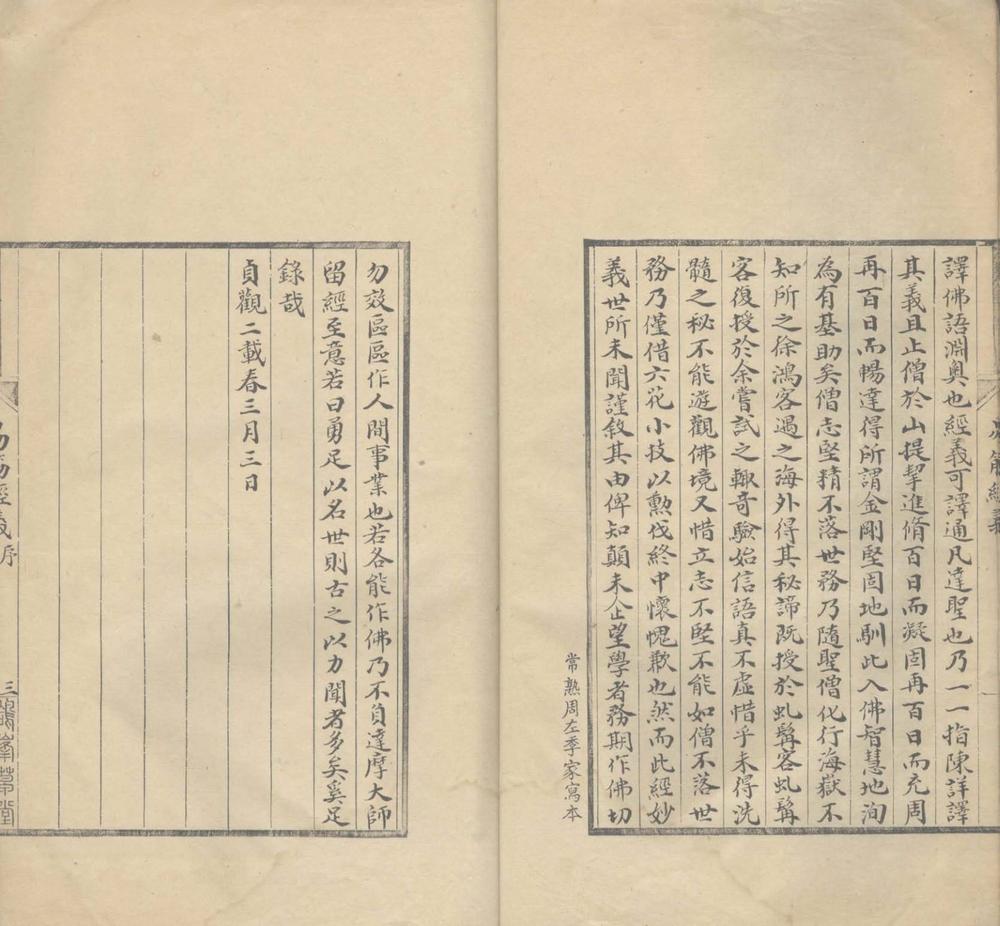 譯佛語淵奧也經義可譯通凡達聖也乃一一指陳詳譯
其義且止僧於山提挈進脩百日而凝固再百日而充周
再百日而暢達得所謂金剛堅固地馴此入佛智慧地洵
為有基助矣僧志堅精不落世務乃隨聖僧化行海嶽不
知所之徐鴻客遇之海外得其秘諦既授於虬髯客虬髯
客復授於余嘗試之輒奇驗始信語真不虛惜乎未得洗
髓之秘不能遊觀佛境又惜立志不堅不能如僧不落世
務乃僅借六花小技以勲伐終中懷愧歉也然而此經妙
義世所未聞謹敘其由俾知顛末企望學者務期作佛切
常熟周左季家寫本
勿效區區作人間事業也若各能作佛乃不負達摩大師
留經至意若曰勇足以名世則古之以力聞者多矣奚足
錄哉
貞觀二載春三月三日
易筋經義序
三